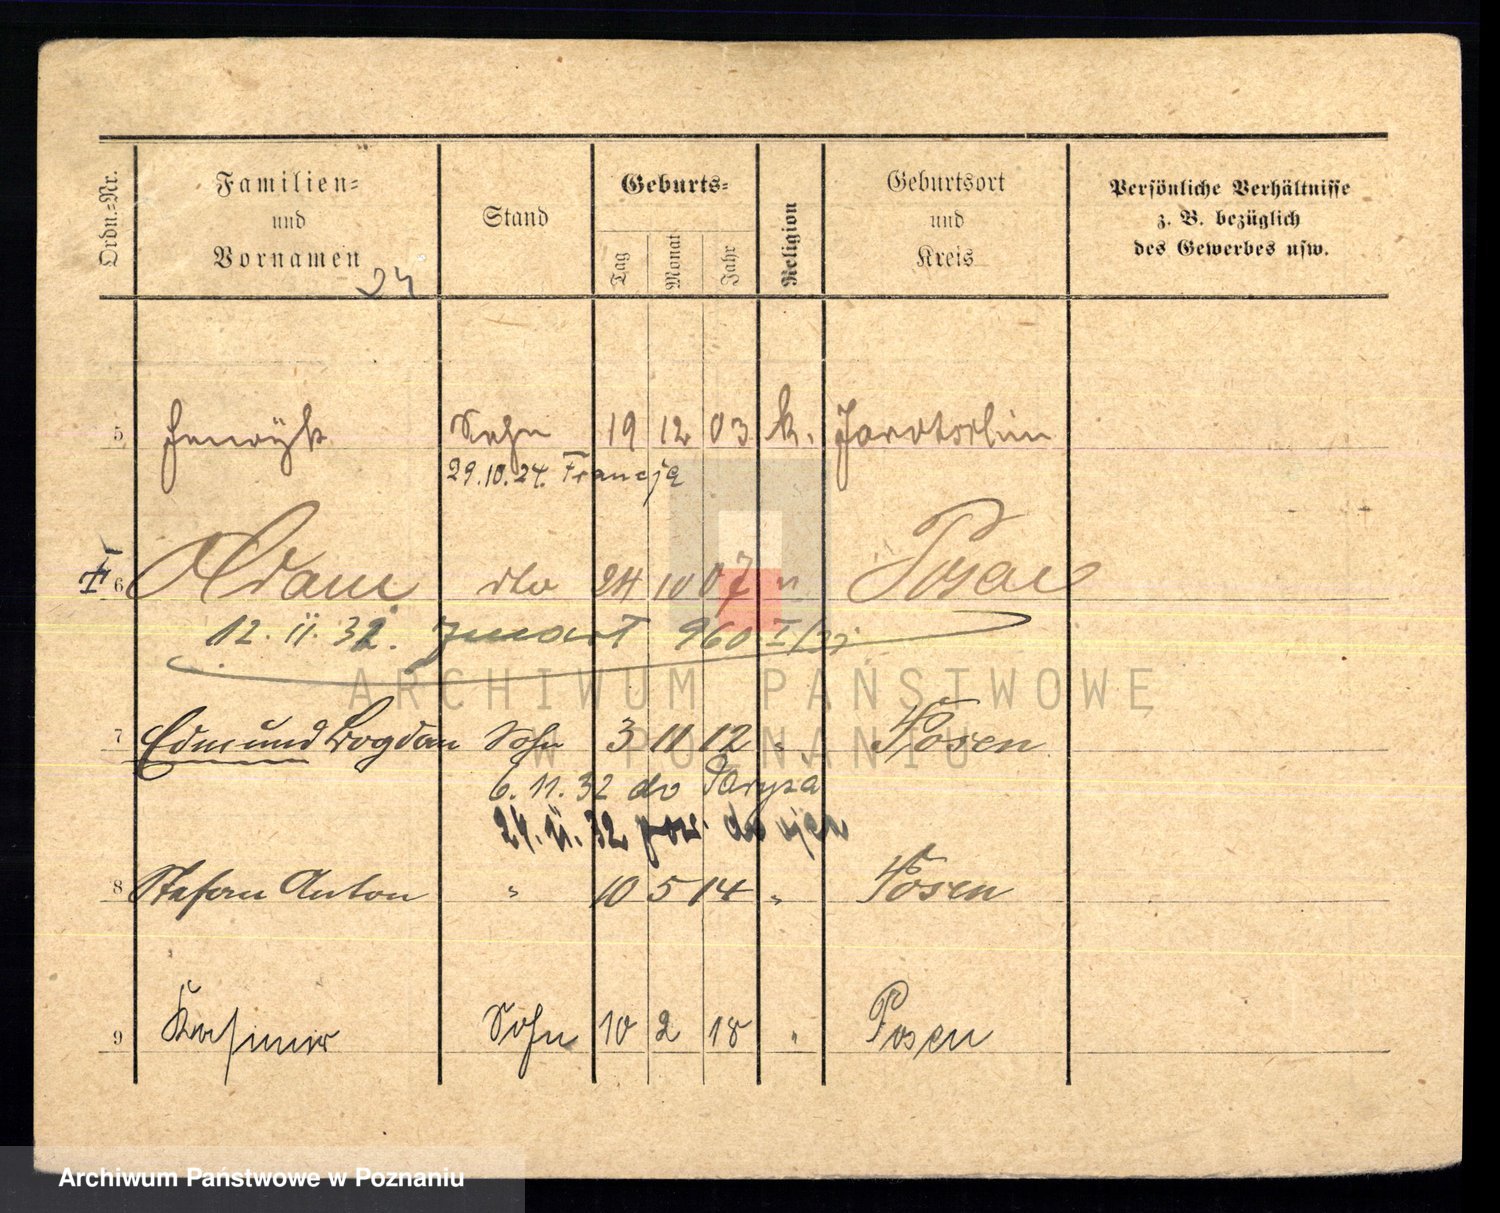 Ordn.-Nr.
Familien-
und
Vornamen
Stand
Geburts-
Tag
Monat
Jahr
Religion
Geburtsort
und
Kreis
Persönliche Verhältnisse
z. B. bezüglich
des Gewerbes usw.
24
5 Henryk Sohn 19 12 03 k. Jarotschin
29.10.24. Francja
† 6 Adam dto 24 10 07 " Posen
12. 11. 32. zmarł 960 I/32
7 Edmund Bogdan Sohn 3 11 12 " Posen
6. 11. 32 do Paryża
24. 11. 32 pow. do ojca
8 Stefan Anton " 10 5 14 " Posen
9 Kasimir Sohn 10 2 18 " Posen
ARCHIWUM PAŃSTWOWE
W POZNANIU
Archiwum Państwowe w Poznaniu